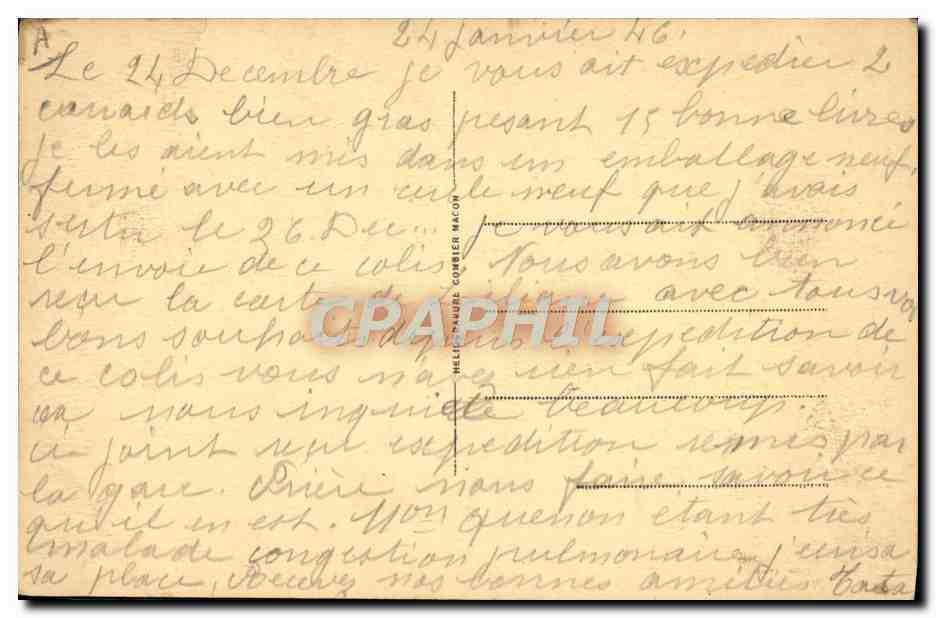 24 janvier 46.
Le 24 Decembre je vous ait expedier 2
canards bien gras pesant 15 bonne livres
je les aient mis dans un emballage neuf,
fermé avec un neuf que j'avais
serti le 26 Dec... je vous ait annoncé
l'envoie de ce colis. Nous avons bien
reçu la carte de avec tous vos
bons souhaits depuis expedition de
ce colis vous n'avez rien fait savoir
nous inquiete beaucoup.
ci joint reçu expedition remis par
la gare. Prière nous faire savoir ce
qu'il en est. Mon étant très
malade congestion pulmonaire
sa place, Recevez nos bonnes amitiés Tata
HELIOGRAVURE COMBIER MACON
CPAPHIL